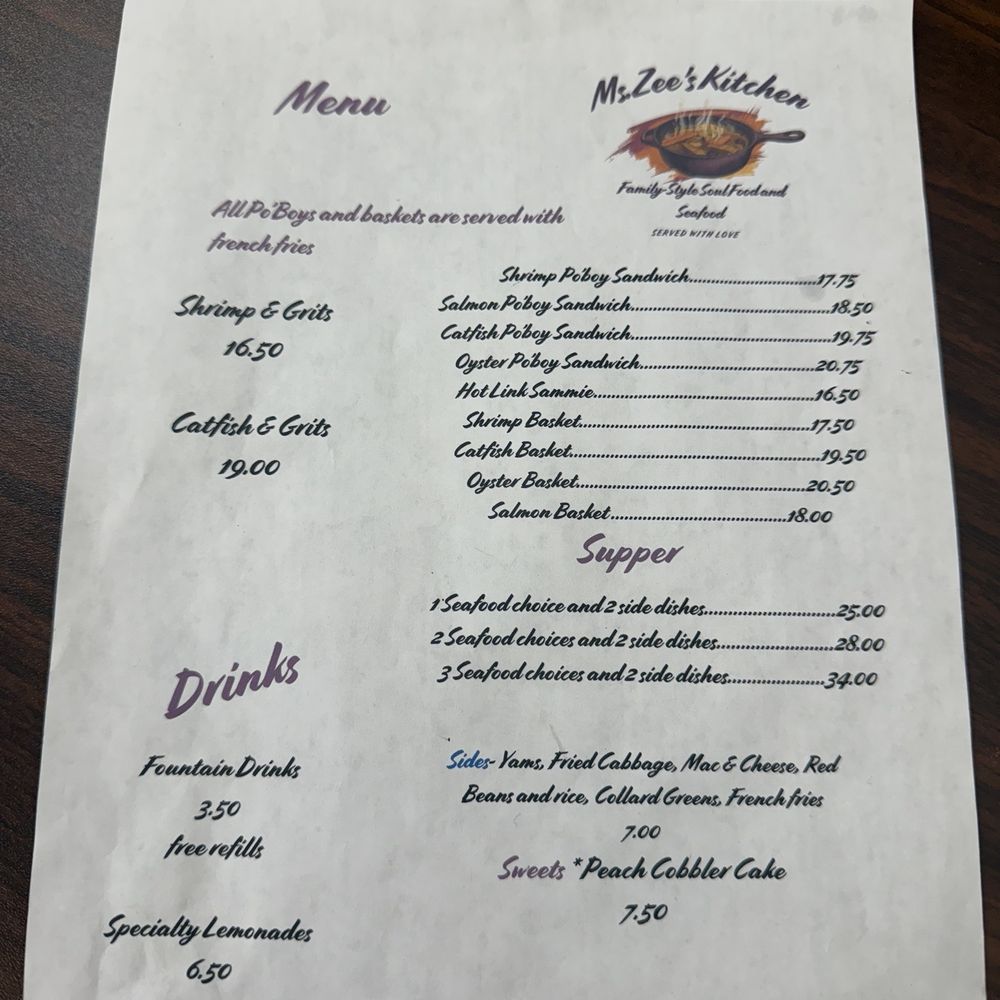 Menu
Ms. Zee's Kitchen
Family-Style Soul Food and
Seafood
SERVED WITH LOVE
All Po'Boys and baskets are served with
french fries
Shrimp & Grits
16.50
Catfish & Grits
19.00
Shrimp Po'boy Sandwich..............................17.75
Salmon Po'boy Sandwich................................................18.50
Catfish Po'boy Sandwich................................................19.75
Oyster Po'boy Sandwich..........................................20.75
Hot Link Sammie......................................................16.50
Shrimp Basket.......................................................17.50
Catfish Basket............................................................19.50
Oyster Basket.......................................................20.50
Salmon Basket..........................................18.00
Supper
1 Seafood choice and 2 side dishes...............................25.00
2 Seafood choices and 2 side dishes...........................28.00
3 Seafood choices and 2 side dishes......................34.00
Drinks
Fountain Drinks
3.50
free refills
Specialty Lemonades
6.50
Sides- Yams, Fried Cabbage, Mac & Cheese, Red
Beans and rice, Collard Greens, French fries
7.00
Sweets *Peach Cobbler Cake
7.50